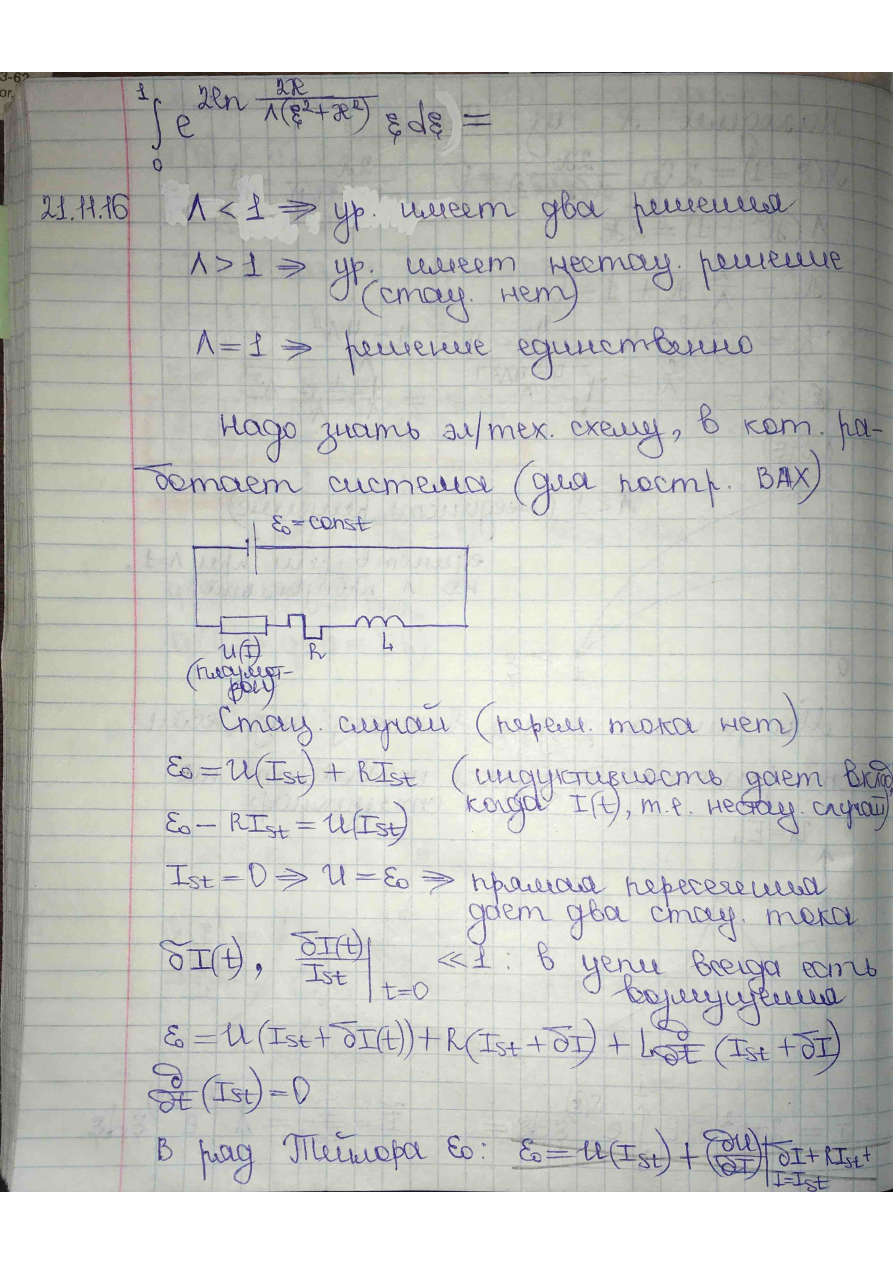 3-62
or.
∫₀¹ e^{2ln 2ϰ/(Λ(ξ²+ϰ²))} ξ dξ) =
21.11.16 Λ < 1 ⇒ ур. имеет два решения
Λ > 1 ⇒ ур. имеет нестац. решение
(стац. нет)
Λ = 1 ⇒ решение единственно
Надо знать эл/тех. схему, в кот. ра-
ботает система (для постр. ВАХ)
ℰ₀ = const
U(I) R L
(плазмот-
рон)
Стац. случай (перем. тока нет)
ℰ₀ = U(I_st) + RI_st (индуктивность дает вклад,
когда I(t), т.е. нестац. случай)
ℰ₀ − RI_st = U(I_st)
I_st = 0 ⇒ U = ℰ₀ ⇒ прямая пересечения
дает два стац. тока
δI(t), δI(t)/I_st |_{t=0} ≪ 1 : в цепи всегда есть
возмущения
ℰ₀ = U(I_st + δI(t)) + R(I_st + δI) + L ∂/∂t (I_st + δI)
∂/∂t (I_st) = 0
В ряд Тейлора ℰ₀: ℰ₀ = U(I_st) + (∂U/∂I)|_{I=I_st} δI + RI_st +